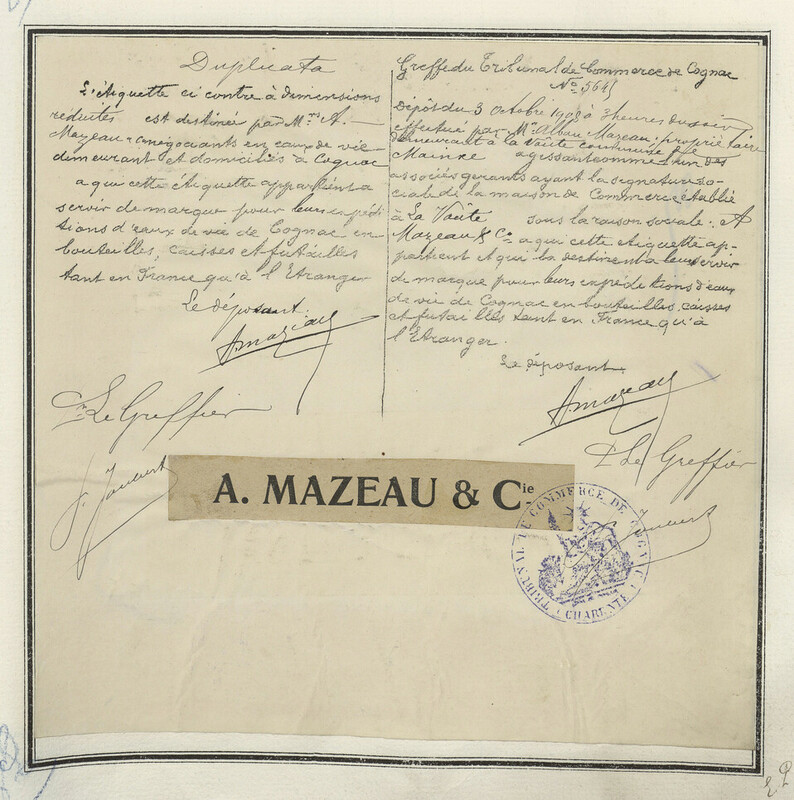 Duplicata
L'étiquette ci contre à dimensions
réduites est destinée par Mrs A.
Mazeau négociants en eaux de vie
demeurant et domiciliés à Cognac
a qui cette étiquette appartient a
servir de marque pour leurs expédi
tions d'eaux de vie de Cognac en
bouteilles, caisses et futailles
tant en France qu'à l'Etranger
Le déposant.
AMazeau
Pr Le Greffier
J. Joubert
Greffe du Tribunal de Commerce de Cognac
No 564
Dépôt du 3 Octobre 1908 à 3 heures du soir
effectué par Mr Alban Mazeau, propriétaire
demeurant à la Vaûte commune de
Mainxe agissant comme l'un des
associés gerants ayant la signature so-
ciale de la maison de Commerce établie
à La Vaûte sous la raison sociale: A
Mazeau & Co a qui cette etiquette ap-
partient et qui la destinent a leur servir
de marque pour leurs expéditions d'eaux
de vie de Cognac en bouteilles, caisses
et futailles tant en France qu'à
l'Etranger.
Le déposant
AMazeau
Pr Le Greffier
Joubert
A. MAZEAU & Cie
TRIBUNAL DE COMMERCE DE COGNAC
(CHARENTE)